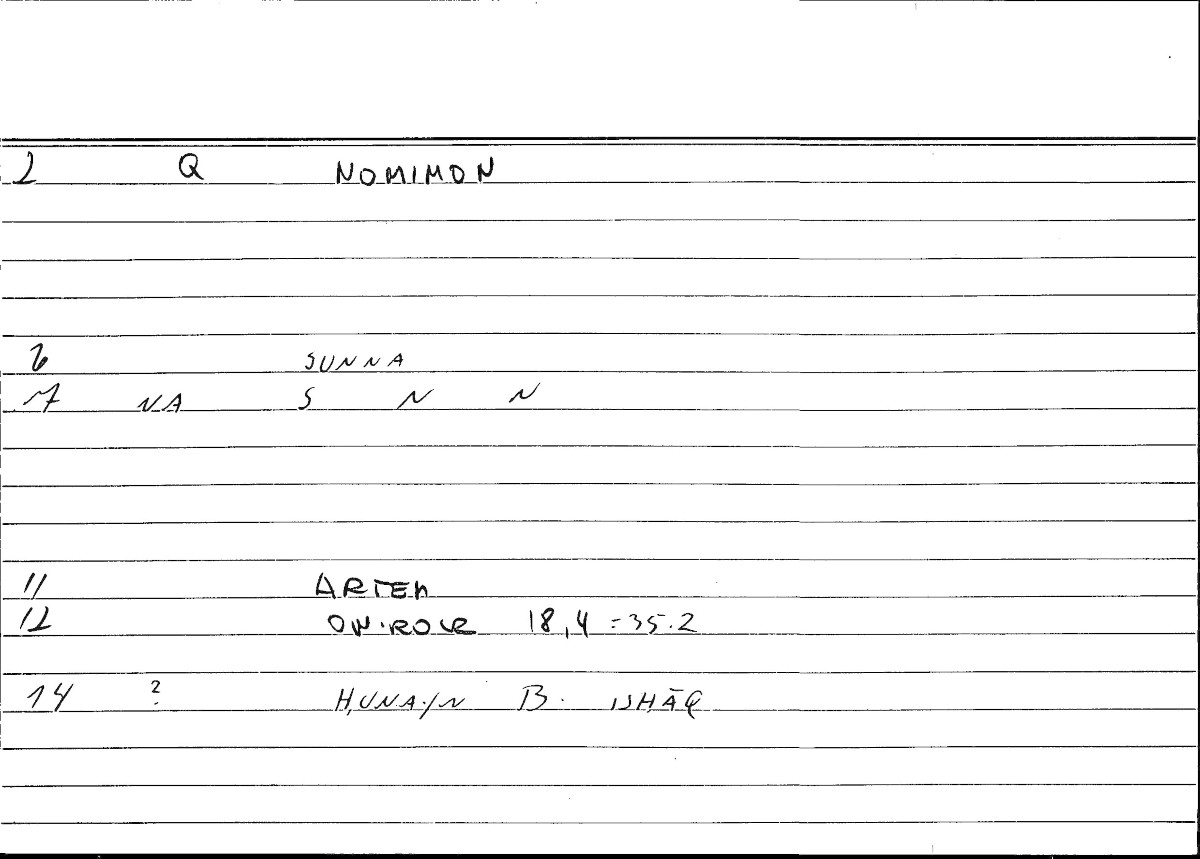 2 Q NOMIMON
6 SUNNA
7 NA S N N
11 ARTEM
12 18,4 = 35.2
14 ? ḤUNAYN B. ISḤĀQ